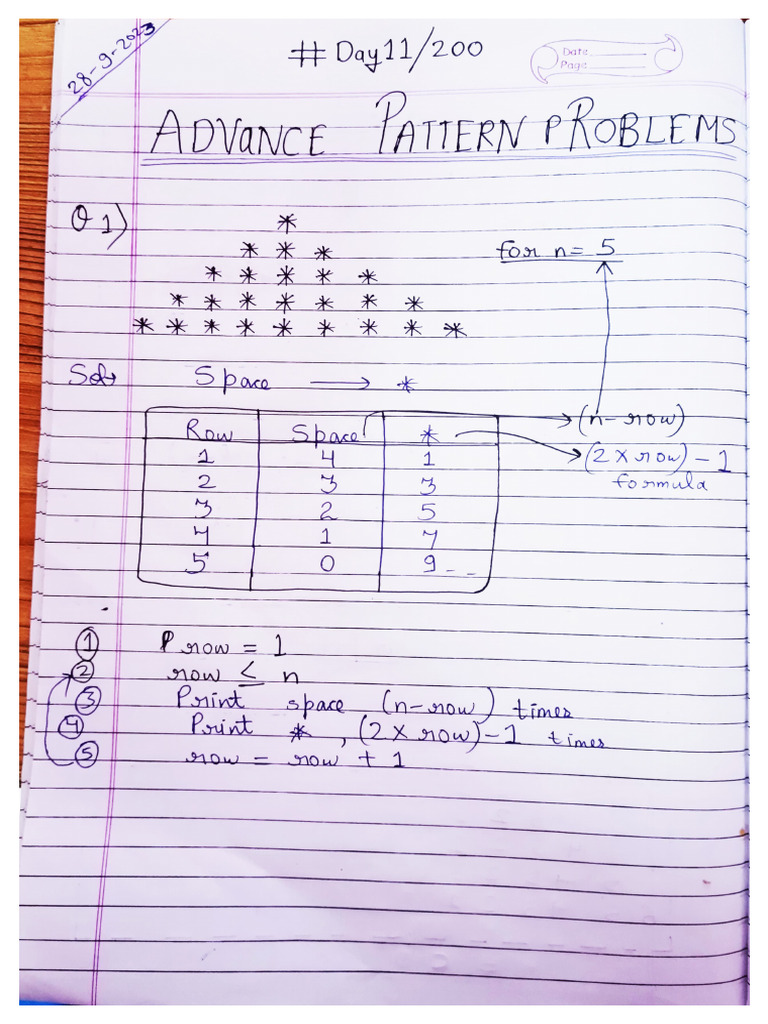 28-9-2023
# Day 11/200
Date
Page
ADVANCE PATTERN PROBLEMS
Q 1)
*
* * *
for n = 5
* * * * *
* * * * * * *
* * * * * * * * *
Sol→ Space → *
(n-row)
Row Space *
(2 × row) - 1
formula
1 4 1
2 3 3
3 2 5
4 1 7
5 0 9
① row = 1
② row ≤ n
③ Print space (n-row) times
④ Print *, (2 × row) - 1 times
⑤ row = row + 1